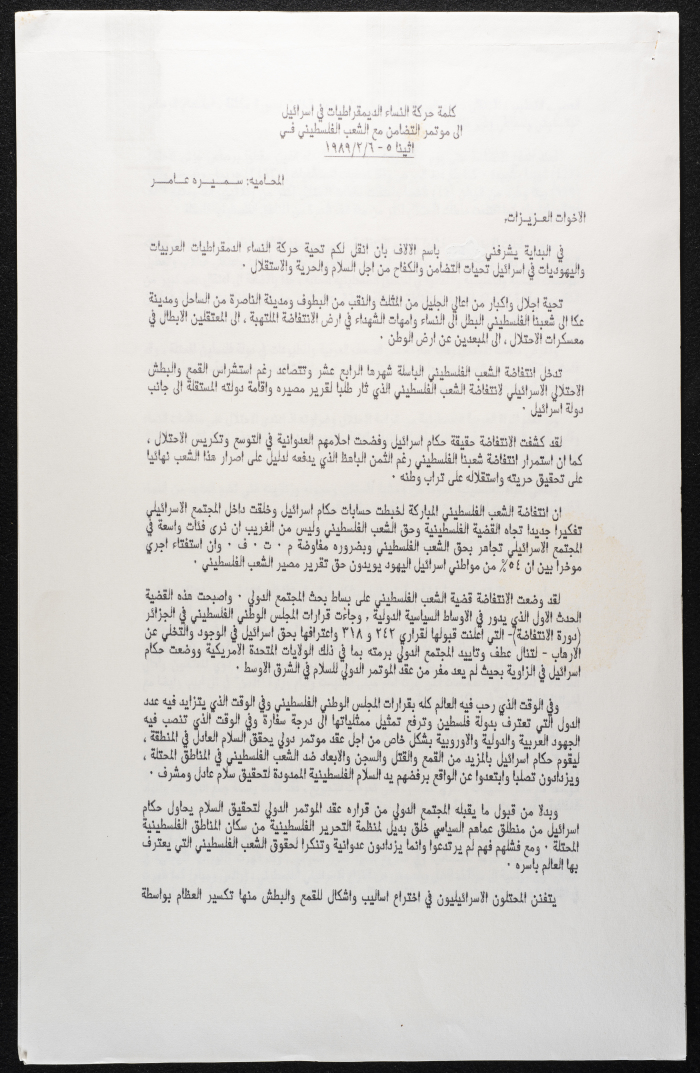 كلمة حركة النساء الديمقراطيات في اسرائيل
الى موتمر التضامن مع الشعب الفلسطيني في
اثينا ٥ - ١٩٨٩/٢/٦
المحاميه: سميره عامر
الاخوات العزيزات،
في البداية يشرفني باسم الالاف بان انقل لكم تحية حركة النساء الدمقراطيات العربيات
واليهوديات في اسرائيل تحيات التضامن والكفاح من اجل السلام والحرية والاستقلال ٠
تحية اجلال واكبار من اعالي الجليل من المثلث والنقب من البطوف ومدينة الناصرة من الساحل ومدينة
عكا الى شعبنا الفلسطيني البطل الى النساء وامهات الشهداء في ارض الانتفاضة الملتهبة ، الى المعتقلين الابطال في
معسكرات الاحتلال ، الى المبعدين عن ارض الوطن ٠
تدخل انتفاضة الشعب الفلسطيني الباسلة شهرها الرابع عشر وتتصاعد رغم استشراس القمع والبطش
الاحتلالي الاسرائيلي لانتفاضة الشعب الفلسطيني الذي ثار طلبا لتقرير مصيره واقامة دولته المستقلة الى جانب
دولة اسرائيل ٠
لقد كشفت الانتفاضة حقيقة حكام اسرائيل وفضحت احلامهم العدوانية في التوسع وتكريس الاحتلال ،
كما ان استمرار انتفاضة شعبنا الفلسطيني رغم الثمن الباهظ الذي يدفعه لدليل على اصرار هذا الشعب نهائيا
على تحقيق حريته واستقلاله على تراب وطنه ٠
ان انتفاضة الشعب الفلسطيني المباركة لخبطت حسابات حكام اسرائيل وخلقت داخل المجتمع الاسرائيلي
تفكيرا جديدا تجاه القضية الفلسطينية وحق الشعب الفلسطيني وليس من الغريب ان نرى فئات واسعة في
المجتمع الاسرائيلي تجاهر بحق الشعب الفلسطيني وبضروره مفاوضة م ٠ ت ٠ ف ٠ وان استفتاء اجري
موخرا بين ان ٥٤٪ من مواطني اسرائيل اليهود يويدون حق تقرير مصير الشعب الفلسطيني ٠
لقد وضعت الانتفاضة قضية الشعب الفلسطيني على بساط بحث المجتمع الدولي ٠ واصبحت هذه القضية
الحدث الاول الذي يدور في الاوساط السياسية الدولية ، وجاءت قرارات المجلس الوطني الفلسطيني في الجزائر
(دورة الانتفاضة)- التي اعلنت قبولها لقراري ٢٤٢ و ٣١٨ واعترافها بحق اسرائيل في الوجود والتخلي عن
الارهاب - لتنال عطف وتاييد المجتمع الدولي برمته بما في ذلك الولايات المتحدة الامريكية ووضعت حكام
اسرائيل في الزاوية بحيث لم يعد مفر من عقد الموتمر الدولي للسلام في الشرق الاوسط ٠
وفي الوقت الذي رحب فيه العالم كله بقرارات المجلس الوطني الفلسطيني وفي الوقت الذي يتزايد فيه عدد
الدول التي تعترف بدولة فلسطين وترفع تمثيل ممثلياتها الى درجة سفارة وفي الوقت الذي تنصب فيه
الجهود العربية والدولية والاوروبية بشكل خاص من اجل عقد موتمر دولي يحقق السلام العادل في المنطقة ،
ليقوم حكام اسرائيل بالمزيد من القمع والقتل والسجن والابعاد ضد الشعب الفلسطيني في المناطق المحتلة ،
ويزدادون تصلبا وابتعدوا عن الواقع برفضهم يد السلام الفلسطينية الممدودة لتحقيق سلام عادل ومشرف ٠
وبدلا من قبول ما يقبله المجتمع الدولي من قراره عقد الموتمر الدولي لتحقيق السلام يحاول حكام
اسرائيل من منطلق عماهم السياسي خلق بديل لمنظمة التحرير الفلسطينية من سكان المناطق الفلسطينية
المحتلة ٠ ومع فشلهم فهم لم يرتدعوا وانما يزدادون عدوانية وتنكرا لحقوق الشعب الفلسطيني التي يعترف
بها العالم باسره ٠
يتفنن المحتلون الاسرائيليون في اختراع اساليب واشكال للقمع والبطش منها تكسير العظام بواسطة